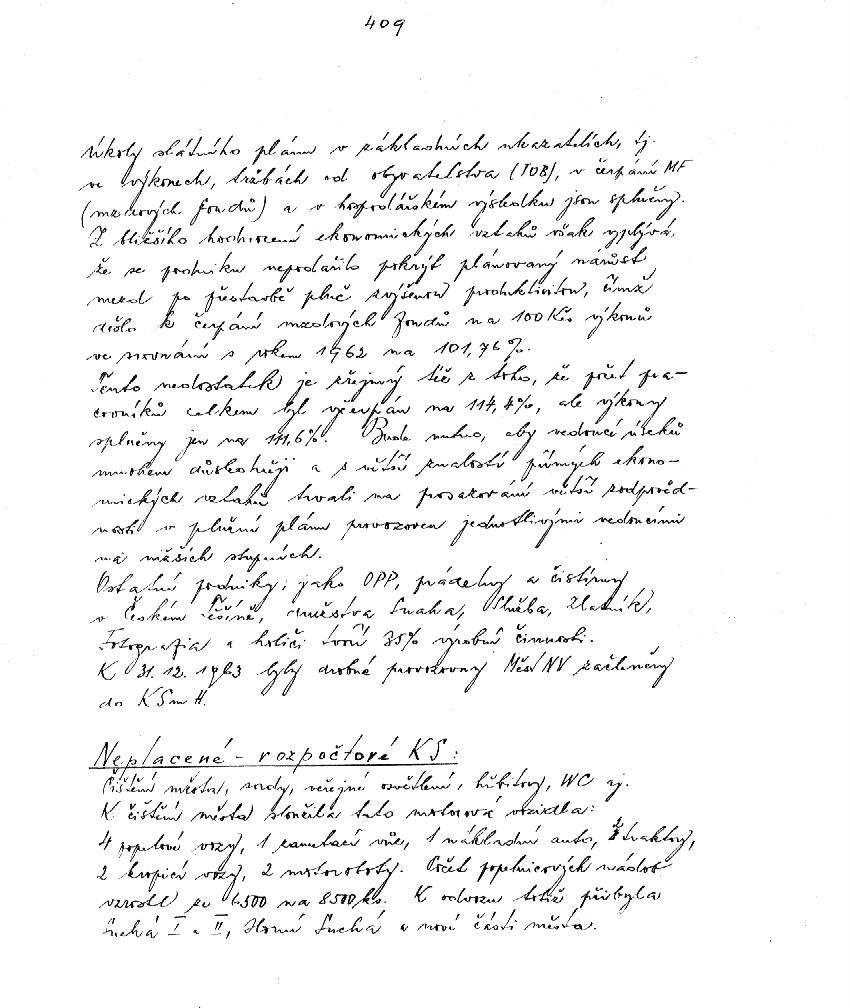 409
Úkoly státního plánu v základních ukazatelích, tj.
ve výkonech, tržbách od obyvatelstva (TOB), v čerpání MF
(mzdových fondů) a v hospodářském výsledku jsou splněny.
Z bližšího hodnocení ekonomických vztahů však vyplývá,
že se podniku nepodařilo pokrýt plánovaný nárůst
mezd po přestavbě plně zvýšenou produktivitou, čímž
došlo k čerpání mzdových fondů na 100 Kčs výkonů
ve srovnání s rokem 1962 na 101,76 %.
Tento nedostatek je zřejmý též z toho, že počet pra-
covníků celkem byl vyčerpán na 114,4%, ale výkony
splněny jen na 111,6%. Bude nutno, aby vedoucí úseků
mnohem důsledněji a s větší znalostí přímých ekono-
mických vztahů trvali na prosazování větší zodpověd-
nosti v plnění plánu provozoven jednotlivými vedoucími
na nižších stupních.
Ostatní podniky, jako OPP, prádelny a čistírny
v Českém Těšíně, družstva Snaha, Služba, Zlatník,
Fotografia a holiči tvoří 35% výrobní činnosti.
K 31. 12. 1963 byly drobné provozovny MěstNV začleněny
do KSmH.
Neplacené - rozpočtové KS:
Čištění města, sady, veřejné osvětlení, hřbitovy, WC aj.
K čištění města sloužila tato motorová vozidla:
4 popelové vozy, 1 zametací vůz, 1 nákladní auto, traktory,
2 kropící vozy, 2 motoroboty. Počet popelnicových nádob
vzrostl ze 6500 na 8500 ks. K odvozu totiž přibyla
Suchá I a II, Horní Suchá a nové části města.